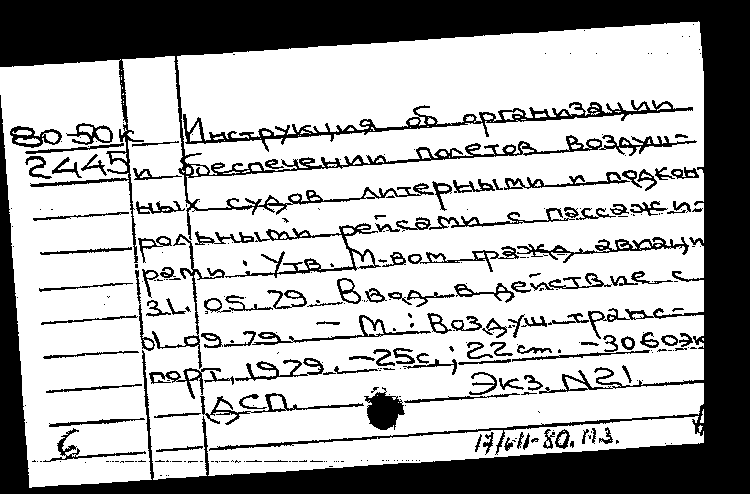 80-50к Инструкция об организации
2445 и обеспечении полетов воздуш-
ных судов литерными и подконт
рольными рейсами с пассажи-
рами: Утв. М-вом гражд. авиаци
31.05.79. Ввод. в действие с
01.09.79. – М.: Воздуш. транс-
порт, 1979. – 25с.; 22 см. – 3060эк
ДСП. Экз. N21.
6